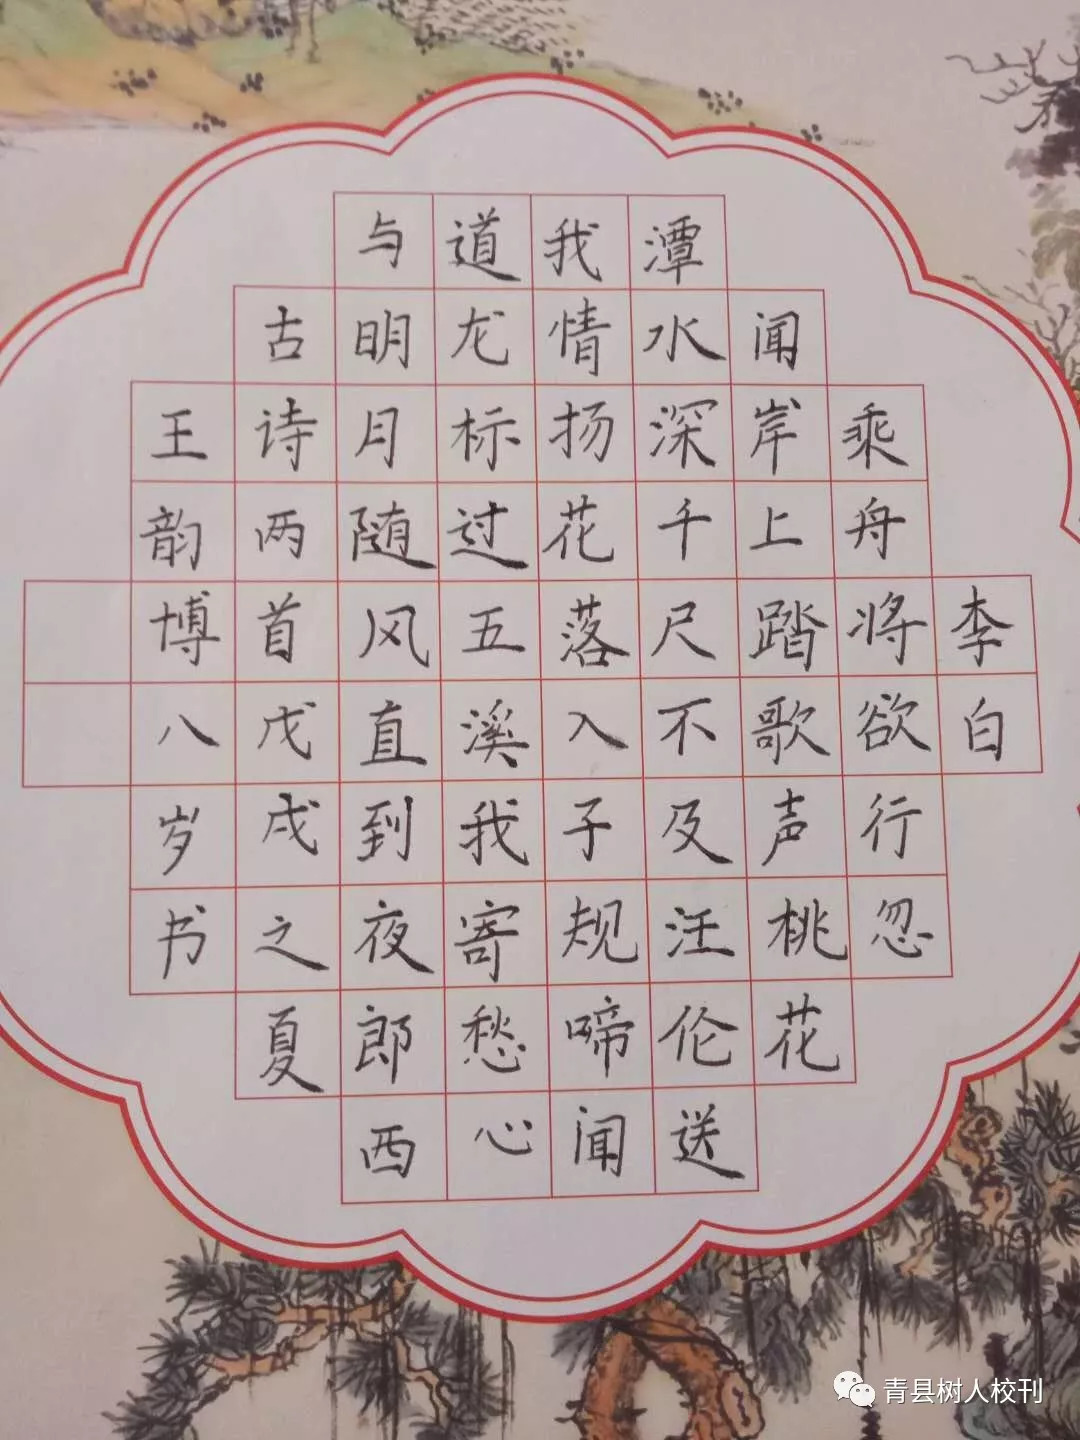 李白
乘舟将欲行忽
闻岸上踏歌声桃花
潭水深千尺不及汪伦送
我情扬花落入子规啼闻
道龙标过五溪我寄愁心
与明月随风直到夜郎西
古诗两首戊戌之夏
王韵博八岁书
青县树人校刊